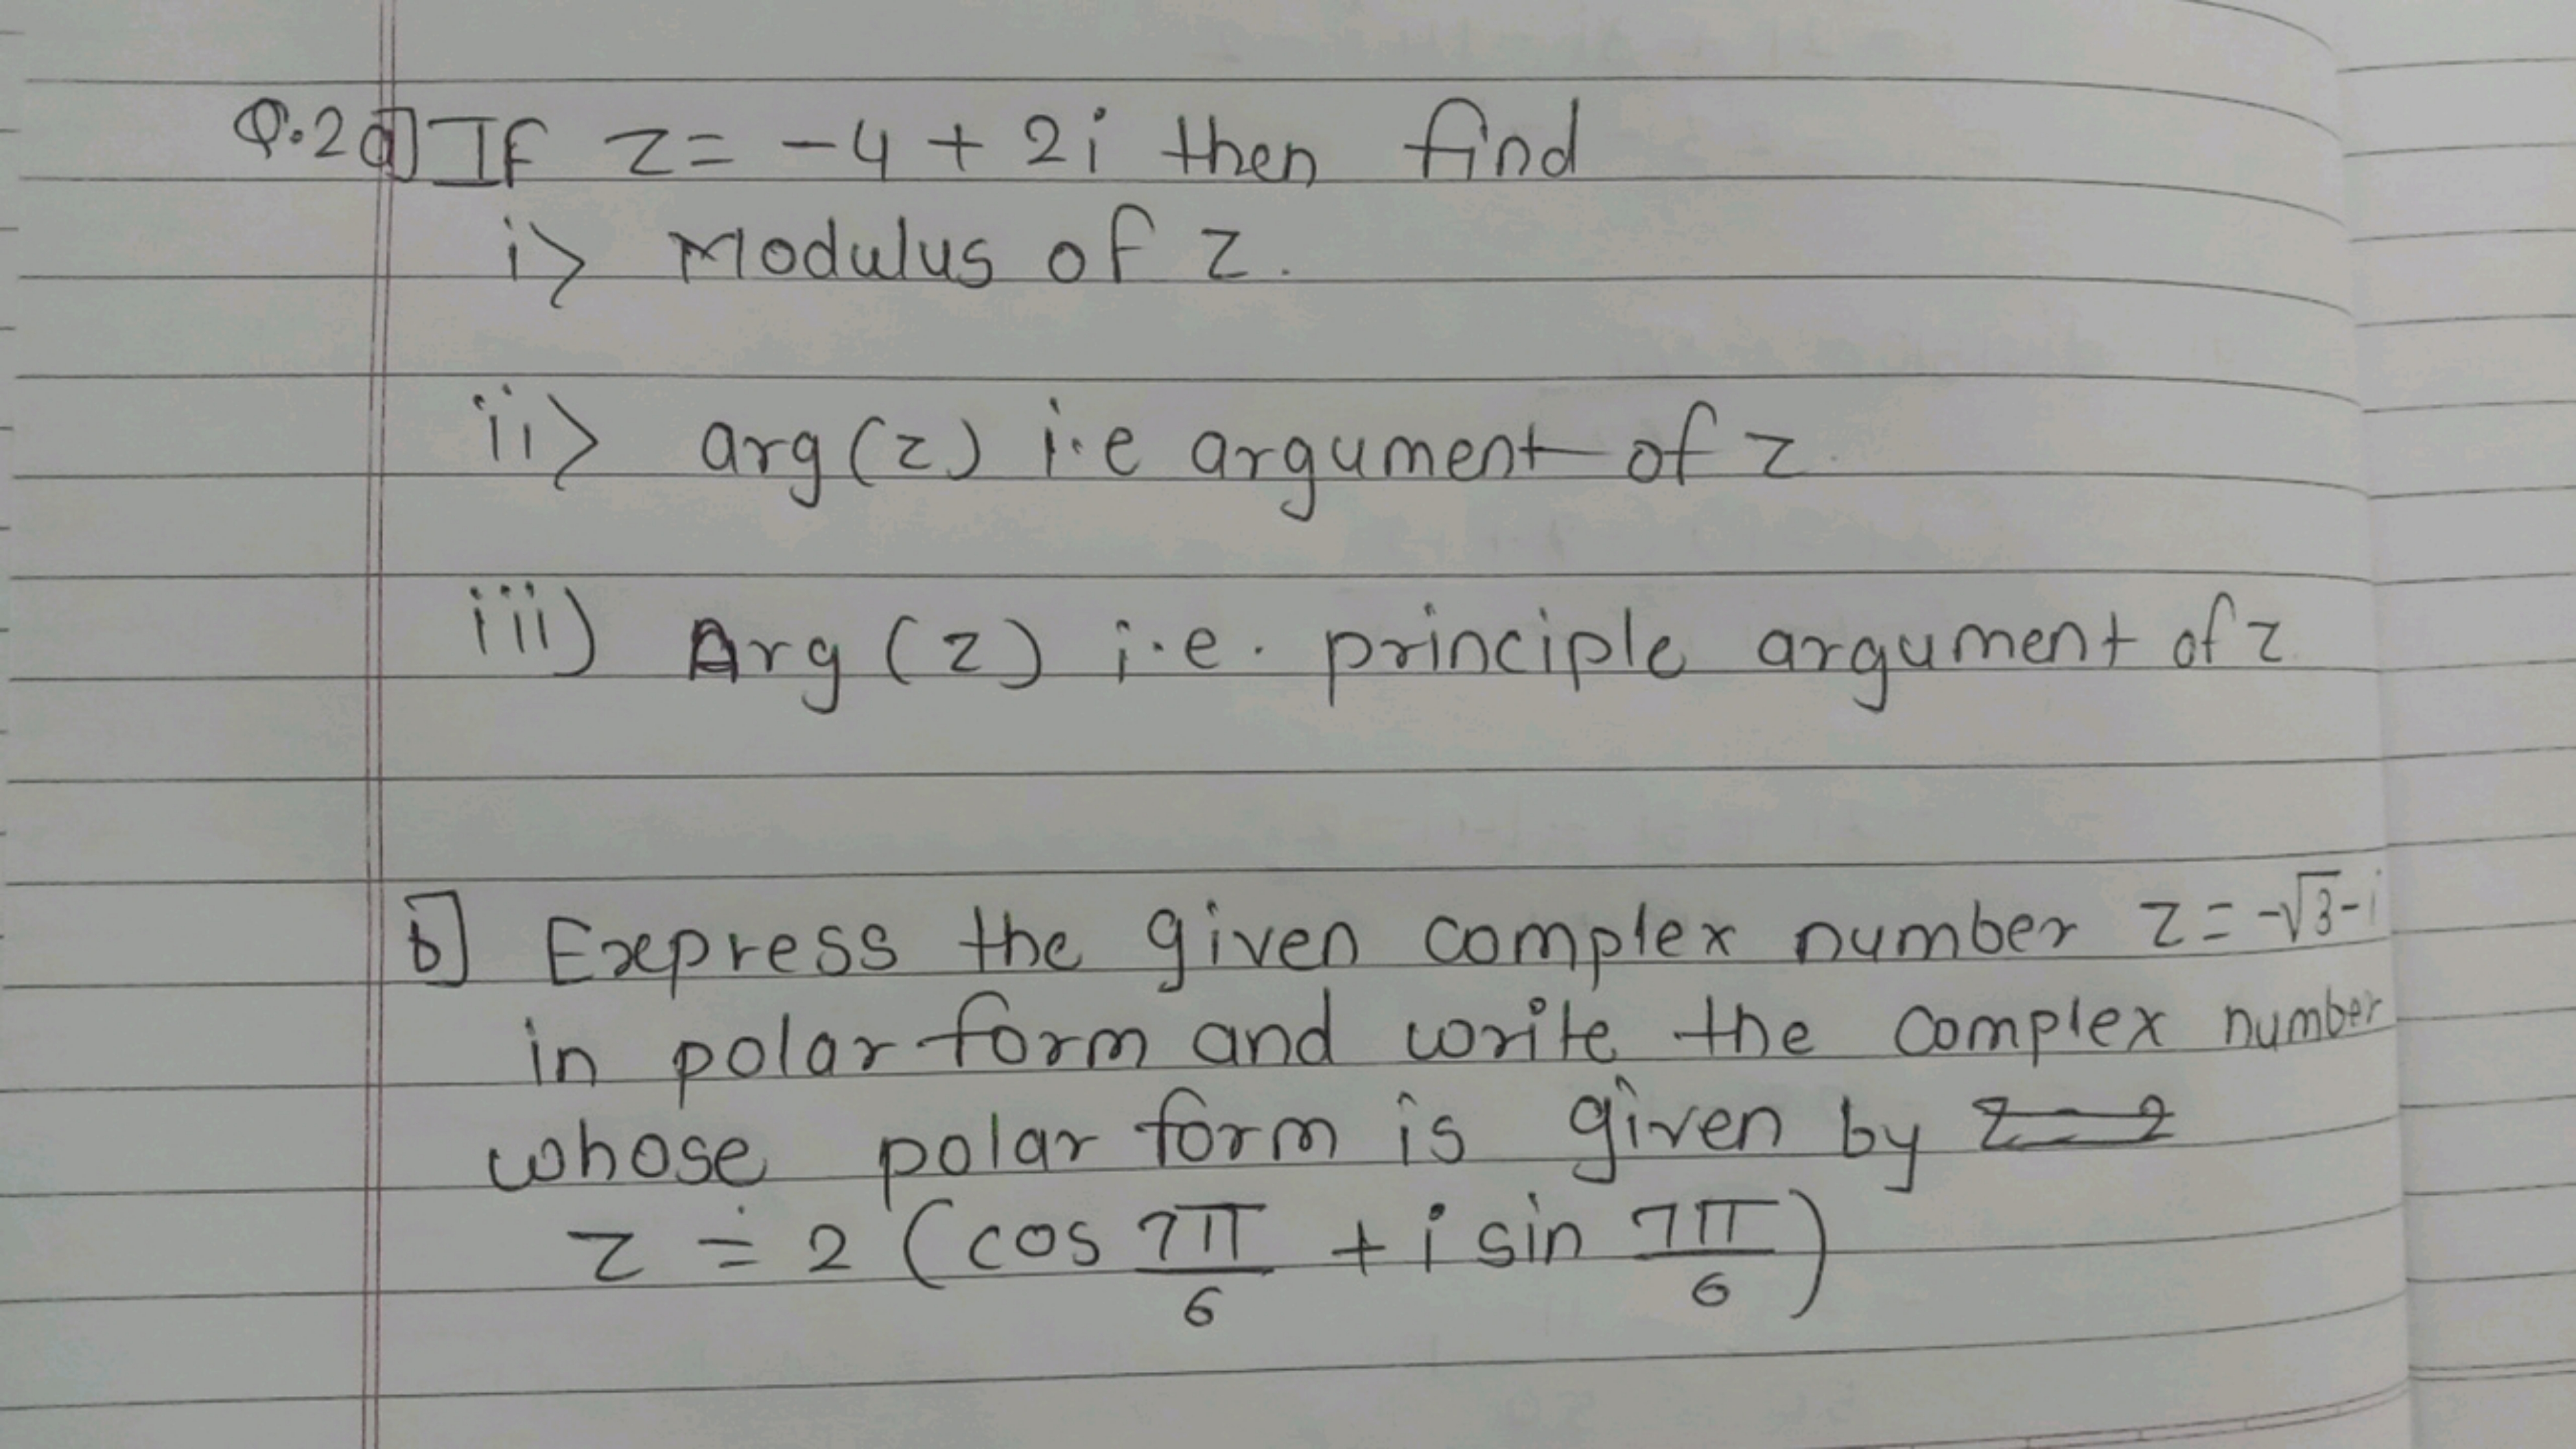 Q.2 a] If z = -4 + 2i then find
i> Modulus of z.
ii> arg(z) i.e argument of z.
iii) Arg (z) i.e. principle argument of z.
b] Express the given complex number z = -√3 - i
in polar form and write the complex number
whose polar form is given by z = 2
z = 2 (cos 7π/6 + i sin 7π/6)